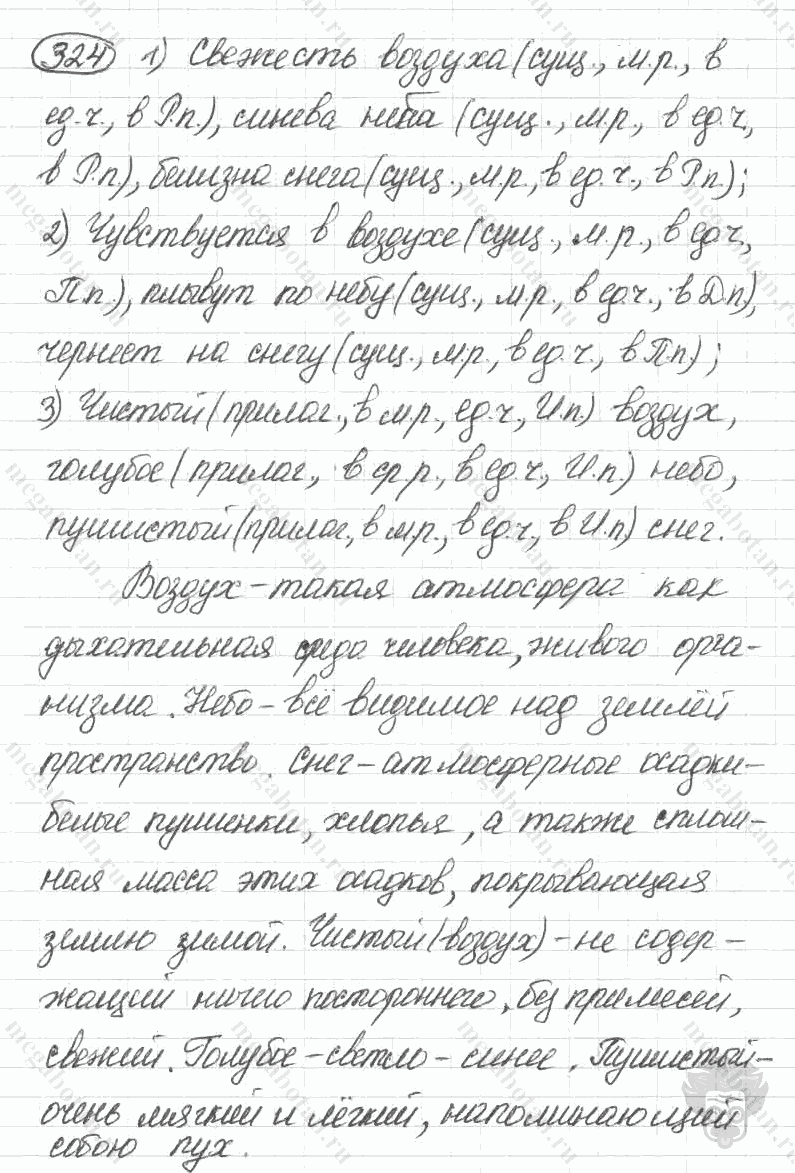 324 1) Свежесть воздуха (сущ., м.р., в
ед.ч., в Р.п.), синева неба (сущ., м.р., в ед.ч,
в Р.п), белизна снега (сущ., м.р., в ед.ч., в Р.п.);
2) Чувствуется в воздухе (сущ., м.р., в ед.ч,
П.п.), плывут по небу (сущ., м.р., в ед.ч., в Д.п),
чернеет на снегу (сущ., м.р., в ед.ч., в П.п.);
3) Чистый (прилаг., в м.р., ед.ч, И.п) воздух,
голубое (прилаг., в ср р., в ед.ч., И.п) небо,
пушистый (прилаг., в м.р., в ед.ч., в И.п) снег.
Воздух – такая атмосфера как
дыхательная среда человека, живого орга-
низма. Небо – всё видимое над землёй
пространство. Снег – атмосферные осадки –
белые пушинки, хлопья, а также сплош-
ная масса этих осадков, покрывающая
землю зимой. Чистый (воздух) – не содер-
жащий ничего постороннего, без примесей,
свежий. Голубое – светло – синее. Пушистый –
очень мягкий и лёгкий, напоминающий
собою пух.
megabotan.ru